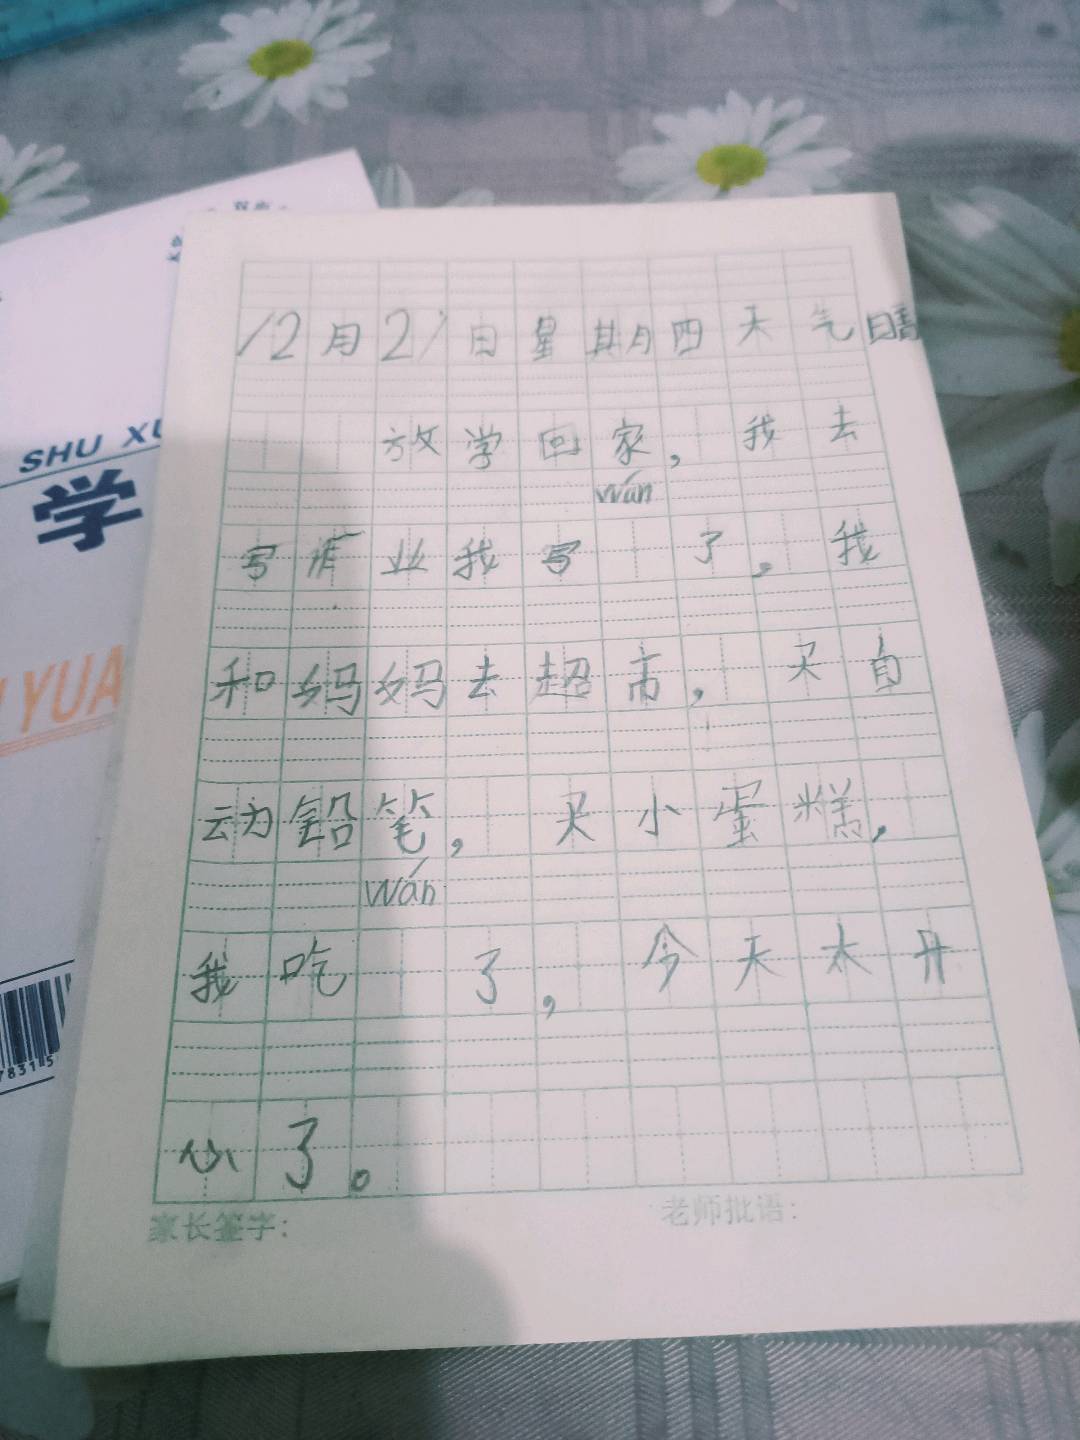 12月21日星期四天气晴
放学回家，我去
wán
写作业我写 了，我
和妈妈去超市，买自
动铅笔，买小蛋糕，
wán
我吃 了，今天太开
心了。
家长签字：
老师批语：
SHU XU
学
YUA
78315